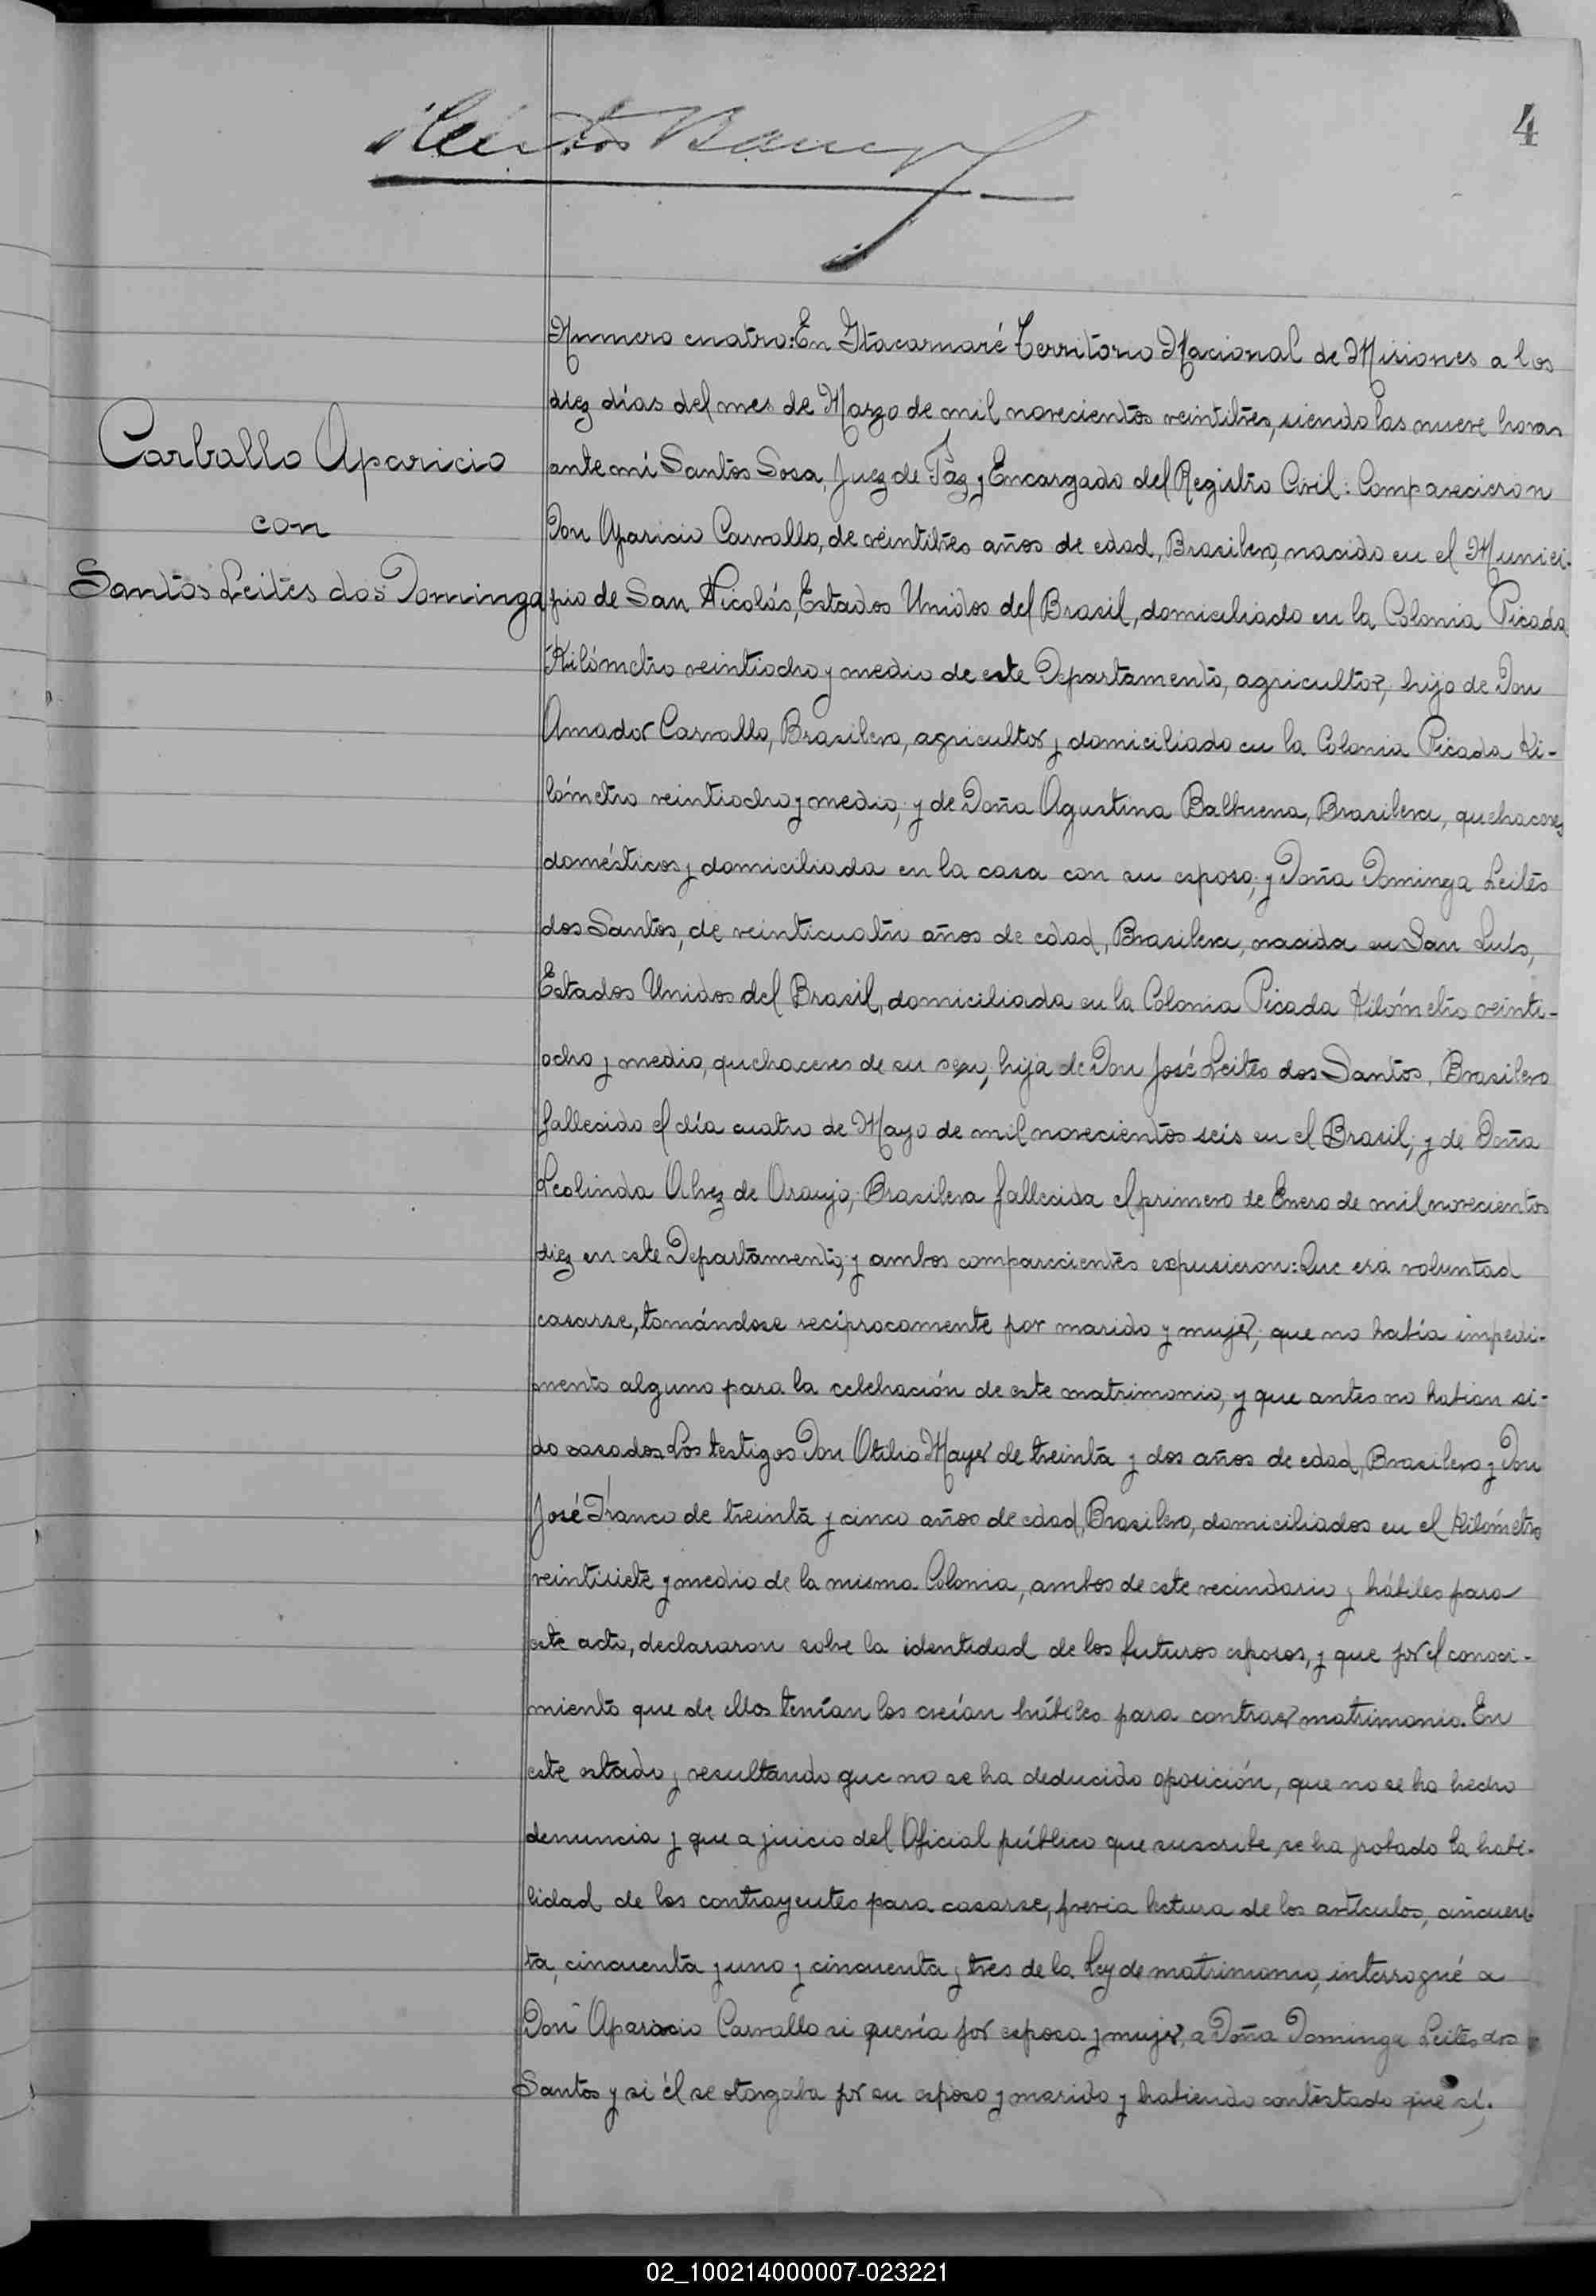 4
Carballo Aparicio
con
Santos Leites dos Dominga
Numero cuatro: En Itacaruaré Territorio Nacional de Misiones a los
diez días del mes de Marzo de mil novecientos veintitres, siendo las nueve horas
ante mi Santos Sosa, Juez de Paz y Encargado del Registro Civil: Comparecieron
Don Aparicio Carvallo, de veintitres años de edad, Brasilero, nacido en el Munici-
pio de San Nicolás, Estados Unidos del Brasil, domiciliado en la Colonia Picada
Kilómetro veintiocho y medio de este Departamento, agricultor, hijo de Don
Amador Carvallo, Brasilero, agricultor y domiciliado en la Colonia Picada Ki-
lómetro veintiocho y medio; y de Doña Agustina Balbuena, Brasilera, quehaceres
domésticos y domiciliada en la casa con su esposo; y Doña Dominga Leites
dos Santos, de veinticuatro años de edad, Brasilera, nacida en San Luís,
Estados Unidos del Brasil, domiciliada en la Colonia Picada Kilómetro veinti-
ocho y medio, quehaceres de su sexo, hija de Don José Leites dos Santos, Brasilero
fallecido el día cuatro de Mayo de mil novecientos seis en el Brasil; y de Doña
Leolinda Alvez de Araujo, Brasilera fallecida el primero de Enero de mil novecientos
diez en este Departamento; y ambos comparecientes expusieron: Que era voluntad
casarse, tomándose reciprocamente por marido y mujer; que no había impedi-
mento alguno para la celebración de este matrimonio, y que antes no habian si-
do casados. Los testigos Don Otilio Mayer de treinta y dos años de edad, Brasilero y Don
José Franco de treinta y cinco años de edad, Brasilero, domiciliados en el Kilómetro
veintisiete y medio de la misma Colonia, ambos de este vecindario y hábiles para
este acto, declararon sobre la identidad de los futuros esposos, y que por el conoci-
miento que de ellos tenían los creían hábiles para contraer matrimonio. En
este estado y resultando que no se ha deducido oposición, que no se ha hecho
denuncia y que a juicio del Oficial público que suscribe, se ha probado la habi-
lidad de los contrayentes para casarse, previa lectura de los artículos, cincuen-
ta, cincuenta y uno y cincuenta y tres de la Ley de matrimonio, interrogué a
Don Aparicio Carvallo si quería por esposa y mujer, a Doña Dominga Leites dos
Santos y si él se otorgaba por su esposo y marido y habiendo contestado que sí,
02_100214000007-023221